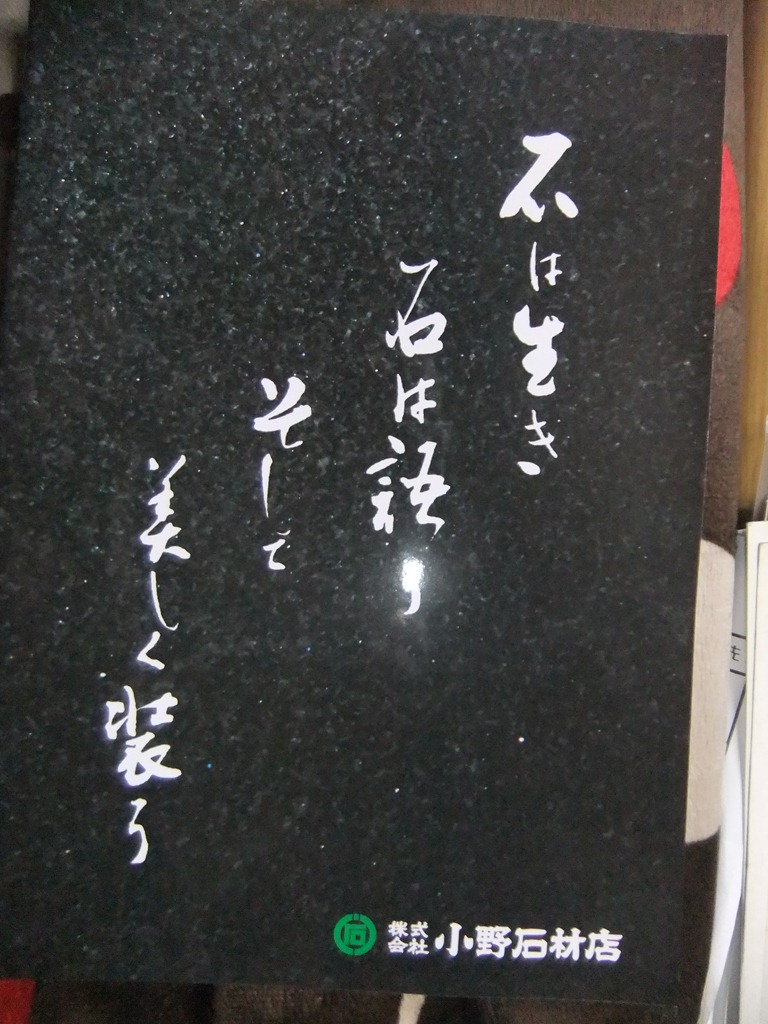 石は生き
石は語り
そして
美しく装う
株式会社 小野石材店